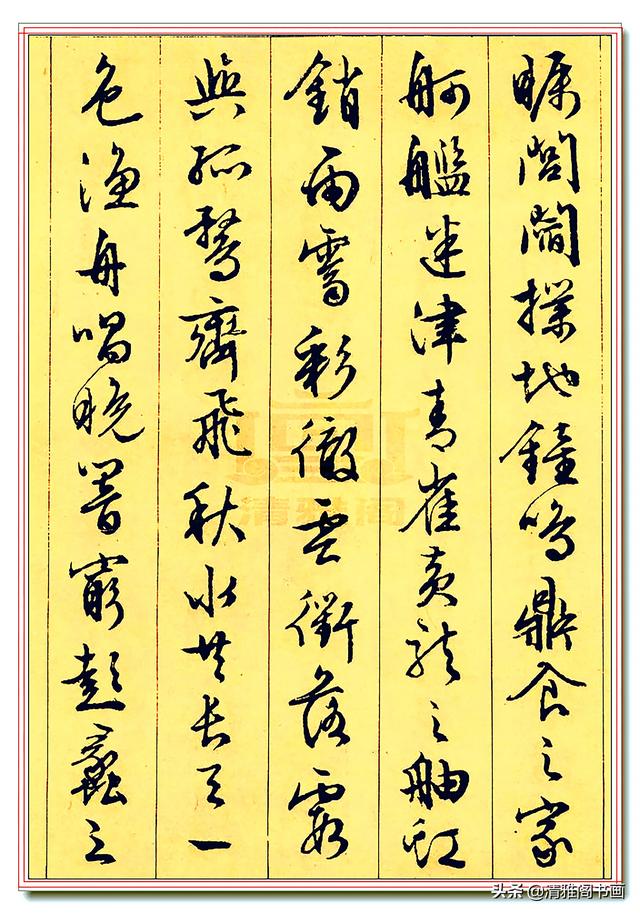 矚閭閻撲地鐘鳴鼎食之家
舸艦迷津青雀黃龍之舳虹
銷雨霽彩徹雲衢落霞
與孤鶩齊飛秋水共長天一
色漁舟唱晚響窮彭蠡之
清雅阁
头条 @清雅阁书画